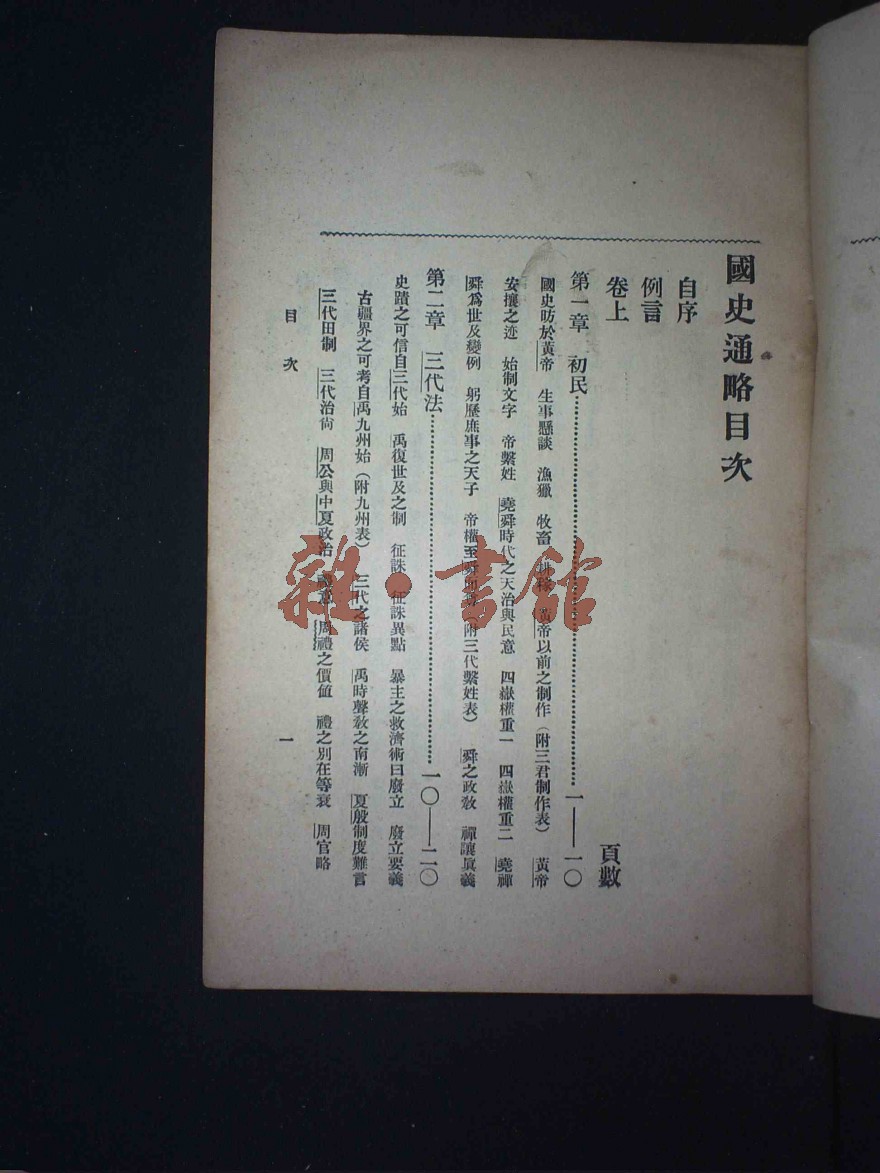 國史通略目次
自序
例言
卷上　頁數
第一章　初民……一——一〇
國史昉於黃帝　生事懸談　漁獵　牧畜　耕稼　黃帝以前之制作（附三君制作表）　黃帝
安攘之迹　始制文字　帝繫姓　堯舜時代之天治與民意　四嶽權重一　四嶽權重二　堯禪
舜爲世及變例　躬歷庶事之天子　帝權至舜（附三代繫姓表）　舜之政敎　禪讓眞義
第二章　三代法……一〇——二〇
史蹟之可信自三代始　禹復世及之制　征誅　征誅異點　暴主之救濟術曰廢立　廢立要義
古疆界之可考自禹九州始（附九州表）　三代之諸侯　禹時聲敎之南漸　夏殷制度難言
三代田制　三代治尙　周公與中夏政治　禮意　周禮之價値　禮之別在等衰　周官略
目次
一
雜·書館